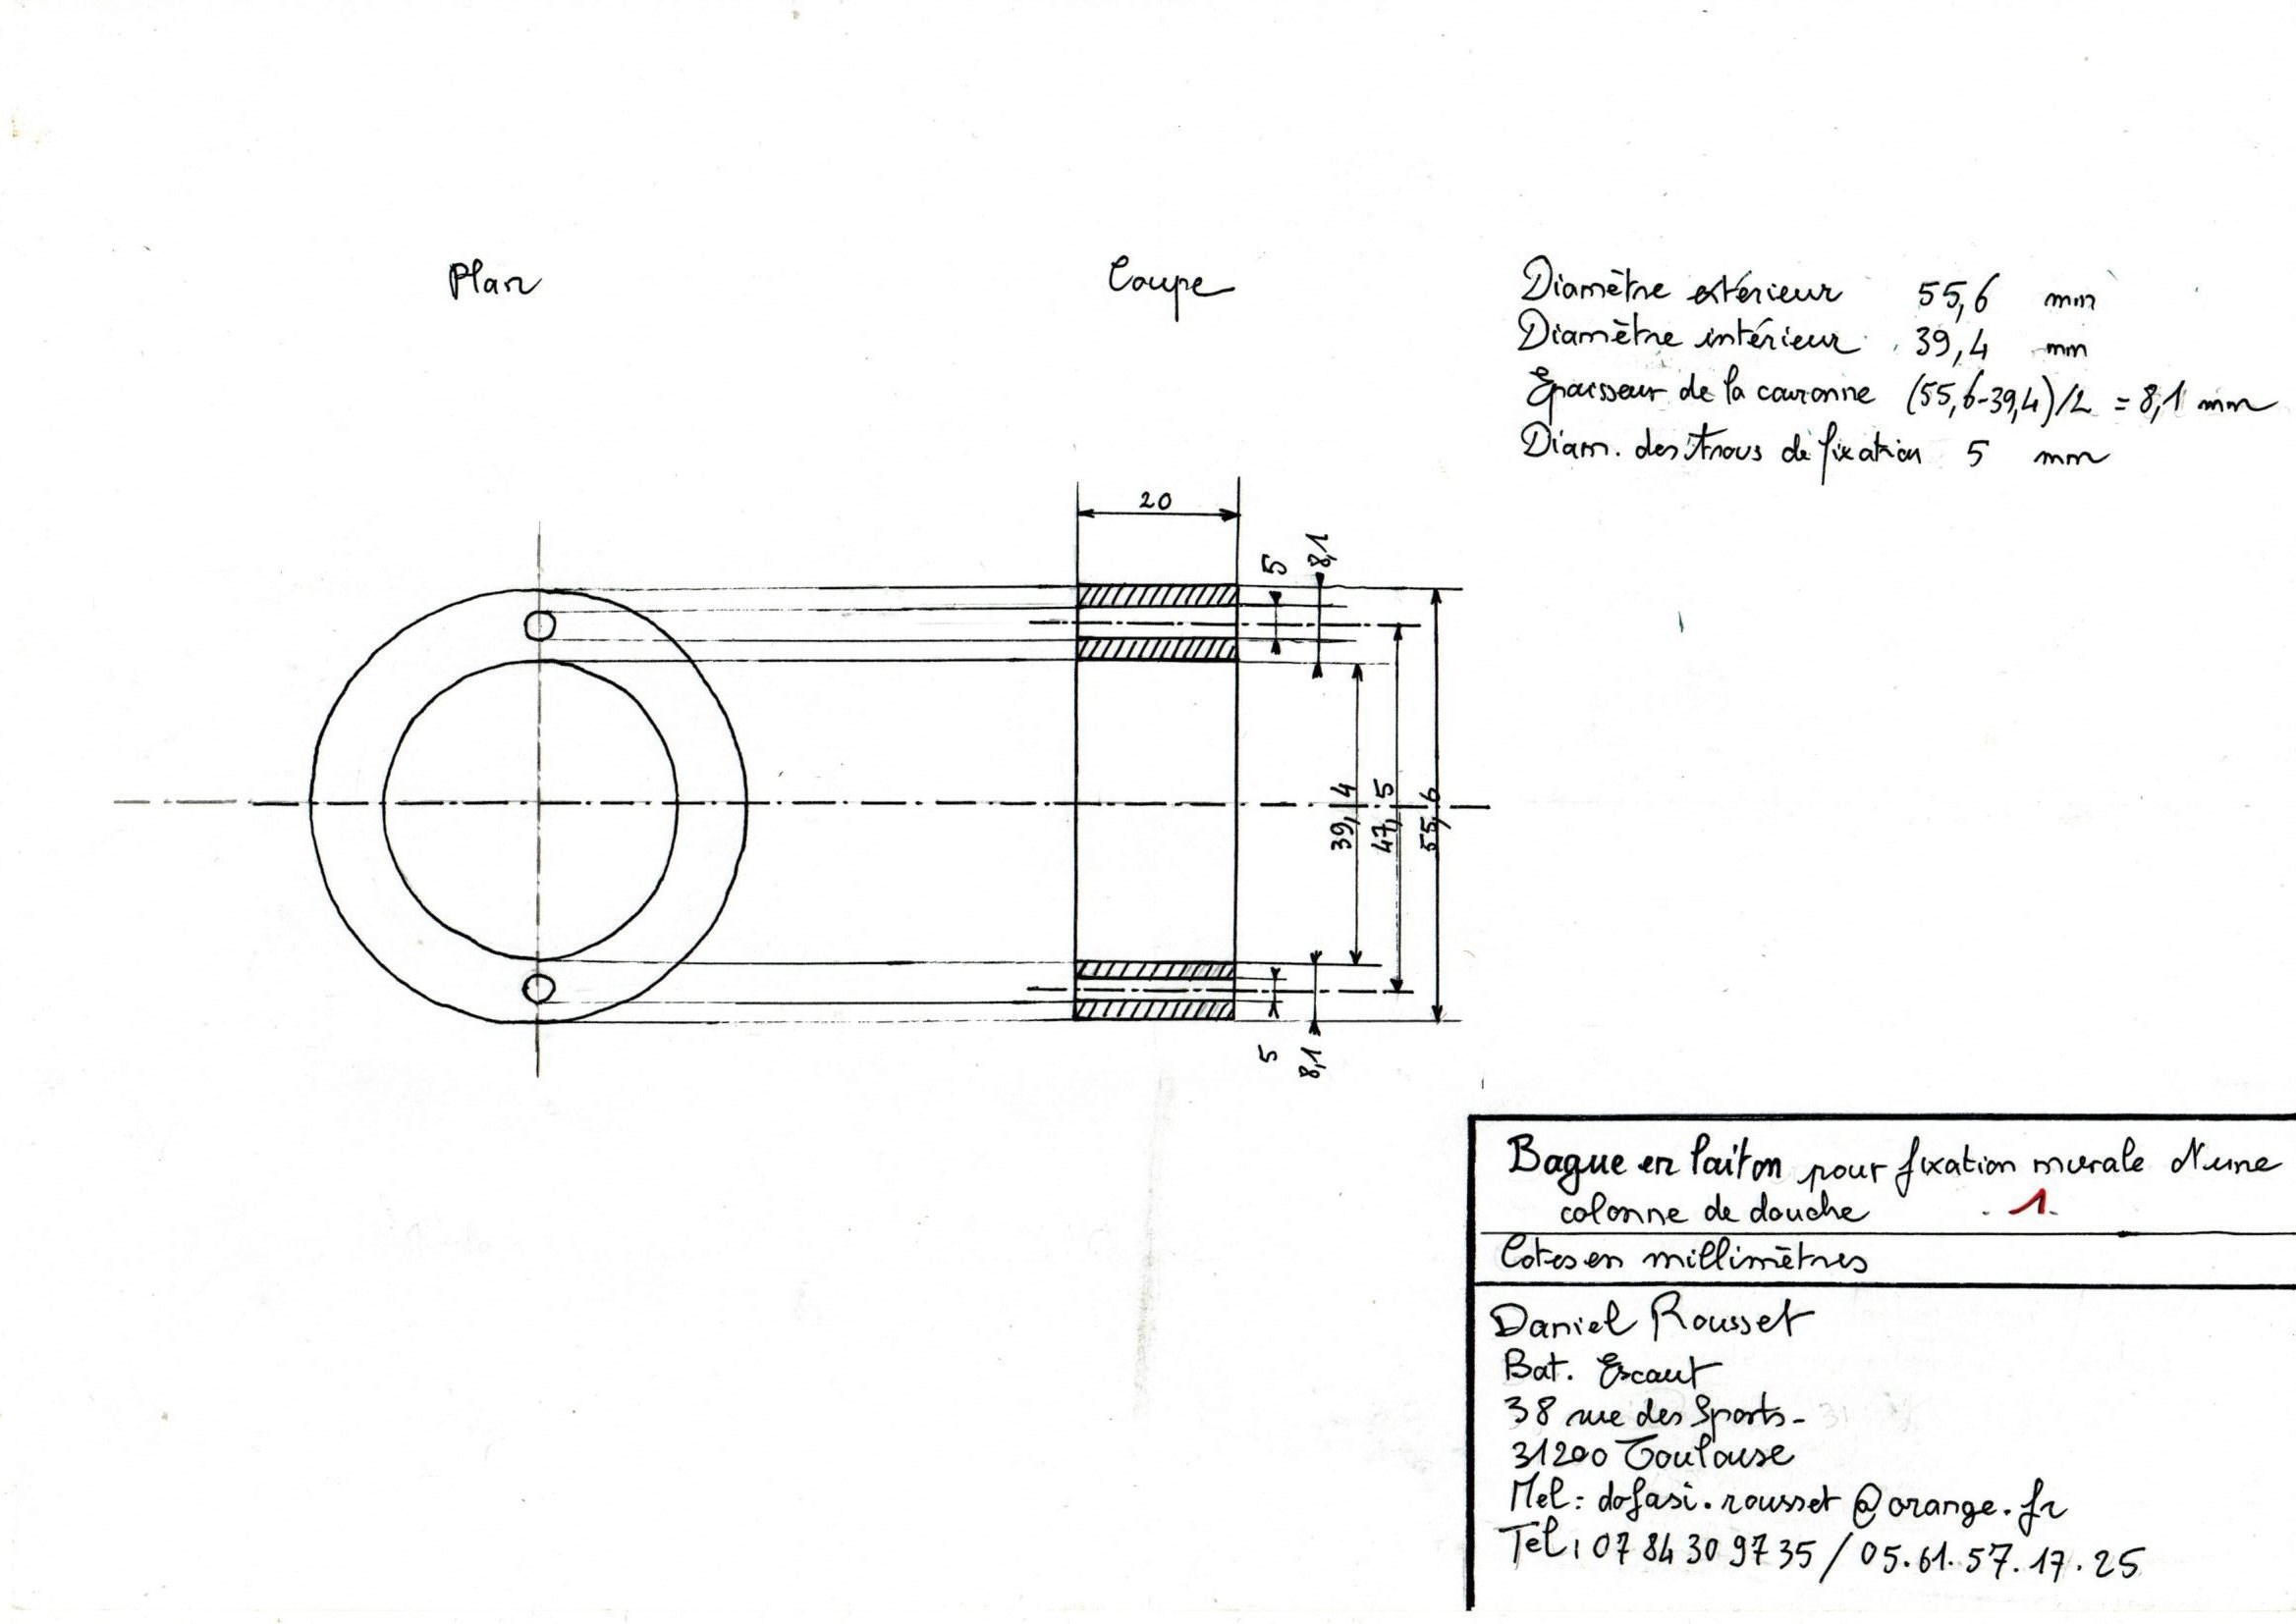 Plan
Coupe
Diamètre extérieur 55,6 mm
Diamètre intérieur 39,4 mm
Epaisseur de la couronne (55,6-39,4)/2 = 8,1 mm
Diam. des trous de fixation 5 mm
20
5
8,1
39,4
47,5
55,6
5
8,1
Bague en laiton pour fixation murale d'une
colonne de douche 1
Cotes en millimètres
Daniel Rousset
Bat. Escaut
38 rue des Sports-
31200 Toulouse
Mel: dofasi.rousset@orange.fr
Tel: 07 84 30 97 35 / 05.61.57.17.25